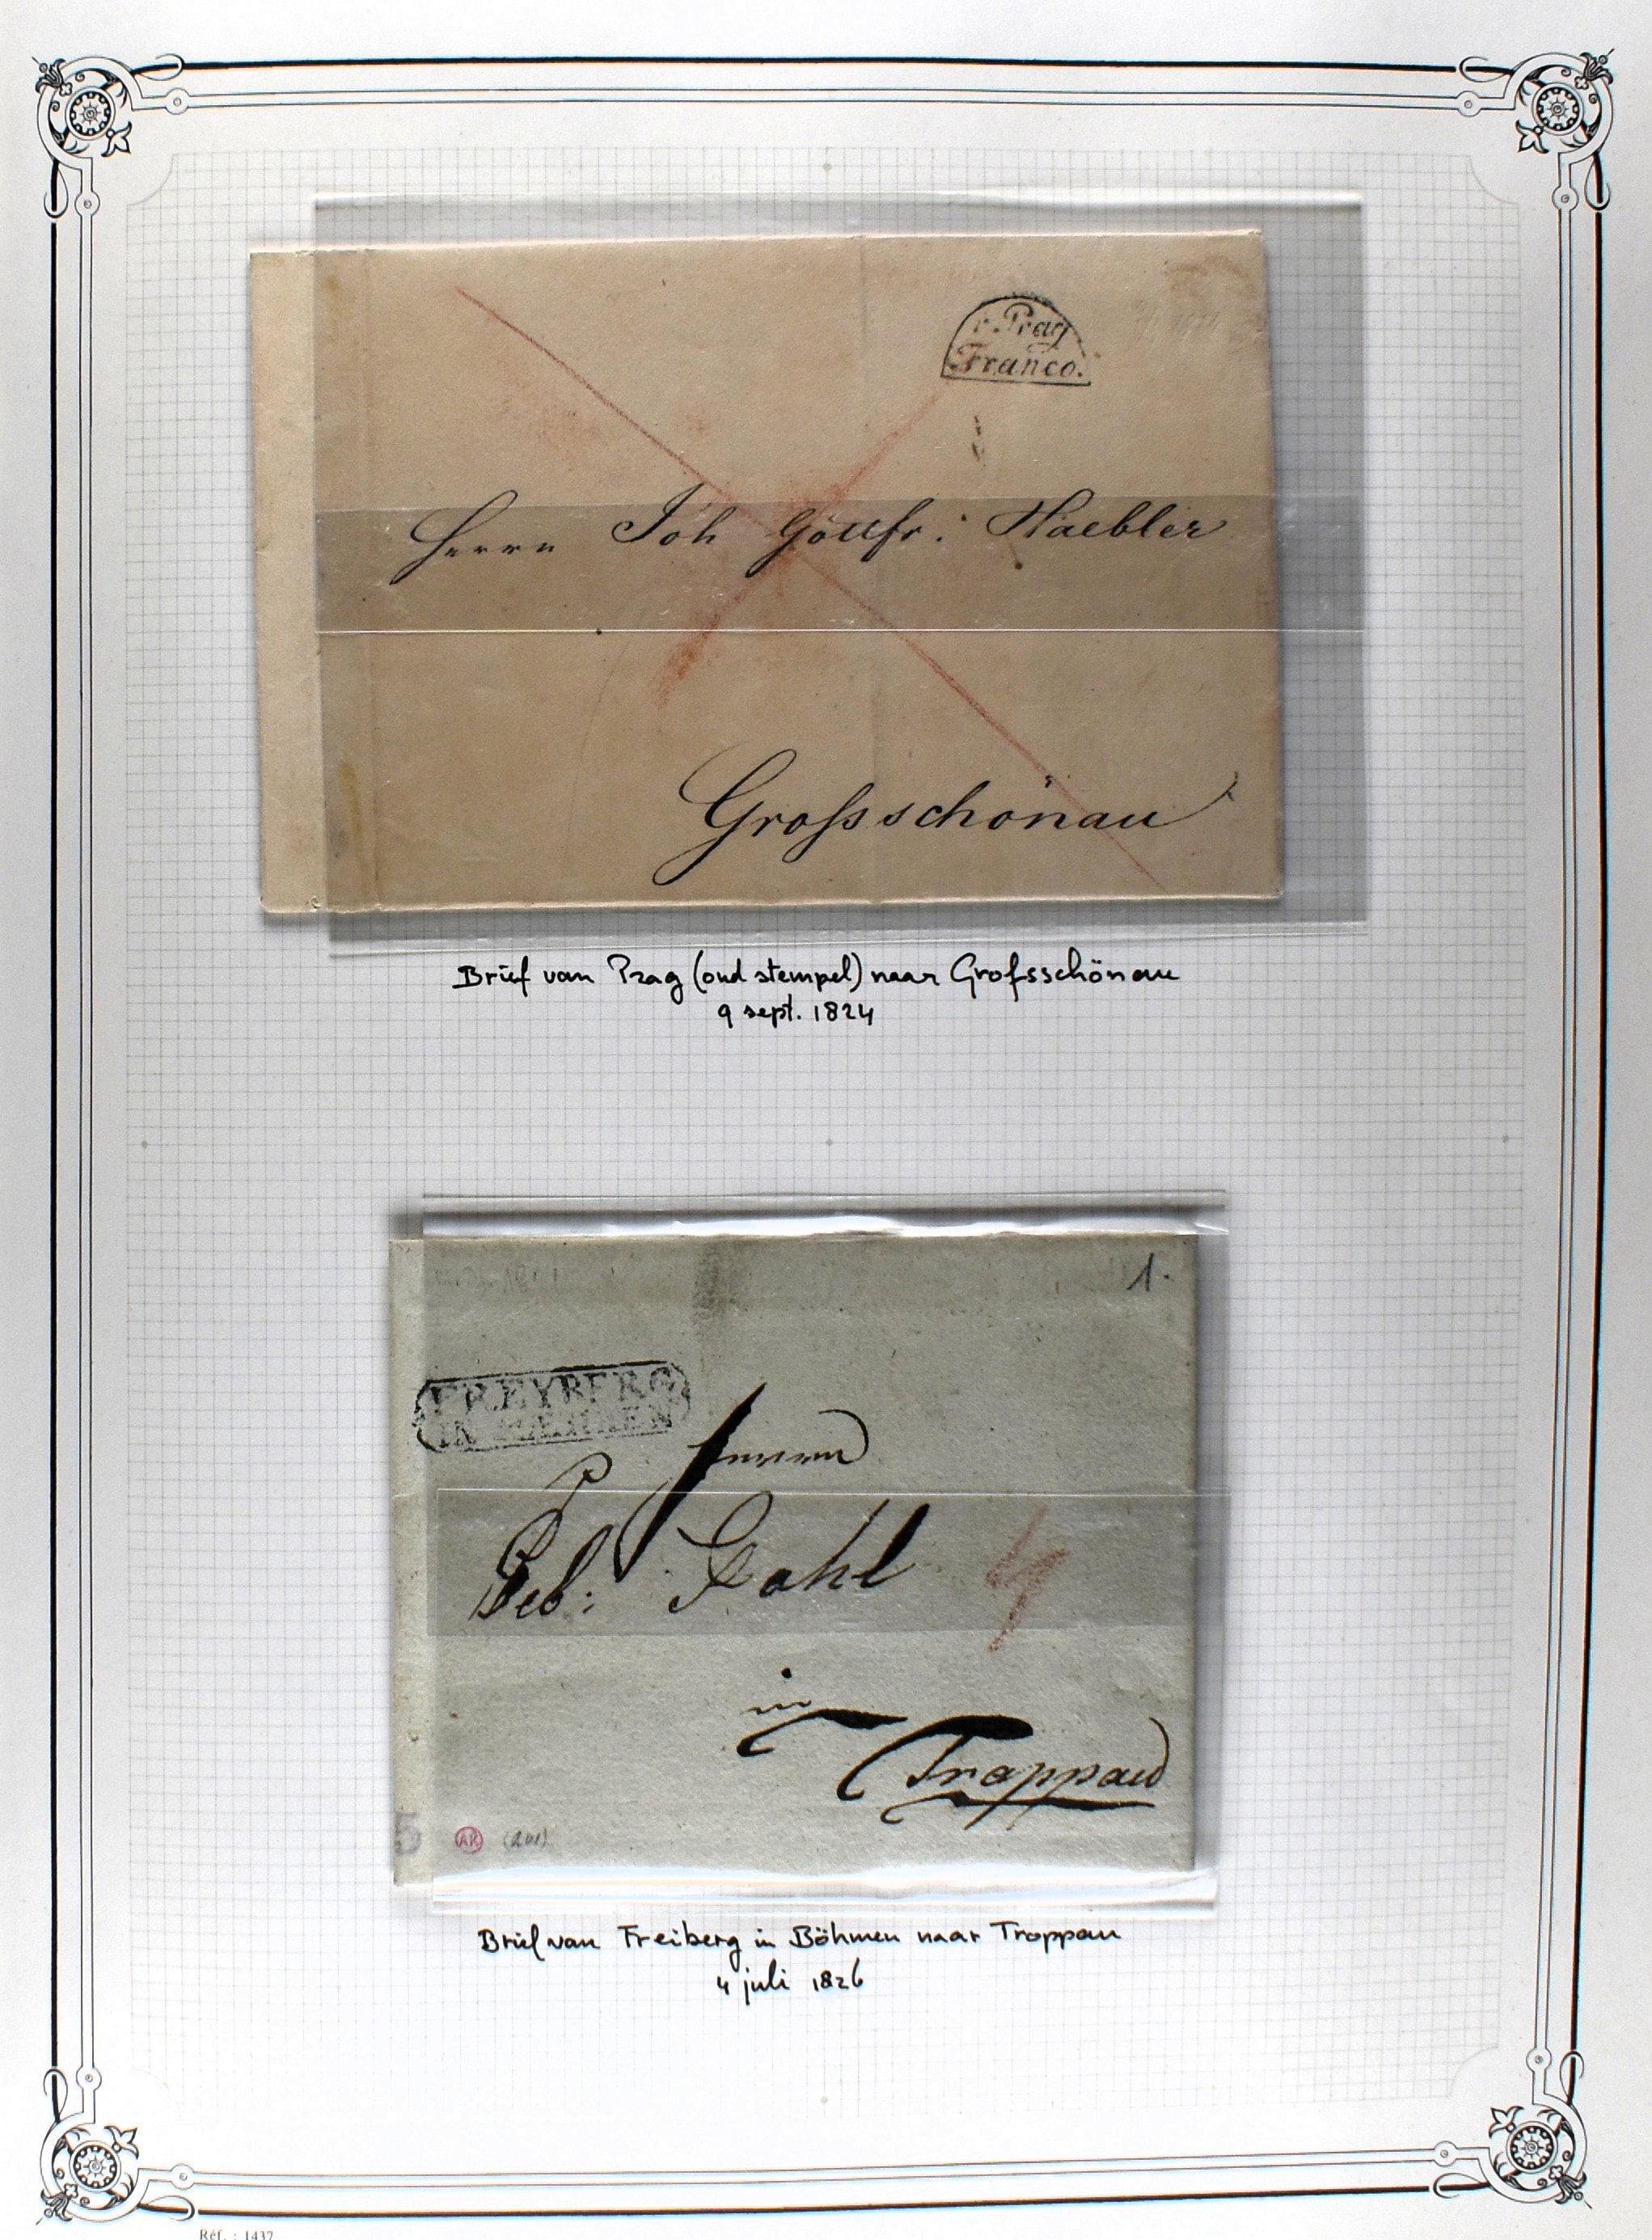 v. Prag
Franco.
Herrn Joh Gottfr: Haebler
Groſsschönau
Brief van Prag (oud stempel) naar Groſsschönau
9 sept. 1824
1.
FREYBERG
IN
Herrn
Geb: Gahl
4
in
Troppau
5 AK (201)
Brief van Freiberg in Böhmen naar Troppau
4 juli 1826
Réf. : 1437